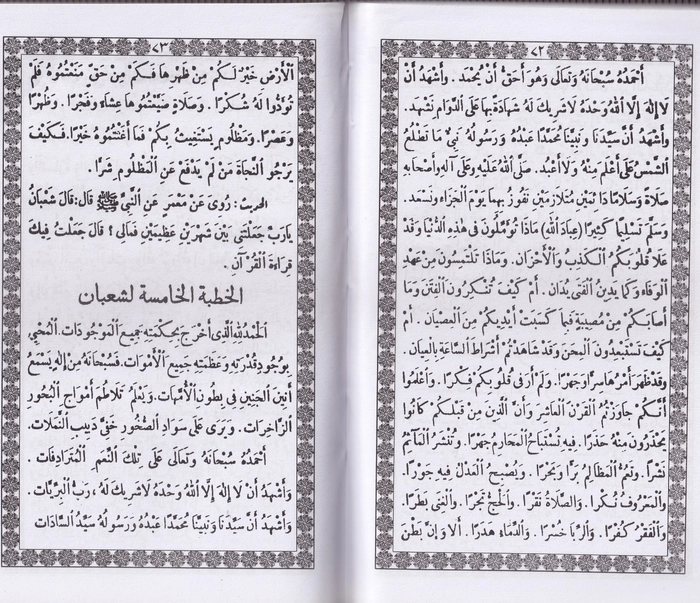 ٧٢
أَحْمَدُهُ سُبْحَانَهُ وَتَعَالَى وَهُوَ أَحَقُّ أَنْ يُحْمَدَ . وَأَشْهَدُ أَنْ
لَا إِلٰهَ إِلَّا اللهُ وَحْدَهُ لَا شَرِيكَ لَهُ شَهَادَةً بِهَا عَلَى الدَّوَامِ نَشْهَد .
وَأَشْهَدُ أَنَّ سَيِّدَنَا وَنَبِيَّنَا مُحَمَّدًا عَبْدُهُ وَرَسُولُهُ نَبِيٌّ مَا تَطْلُعُ
الشَّمْسُ عَلَى أَعْلَمَ مِنْهُ وَلَا أَعْبَد . صَلَّى اللهُ عَلَيْهِ وَعَلَى آلِهِ وَأَصْحَابِهِ
صَلَاةً وَسَلَامًا دَائِمَيْنِ مُتَلَازِمَيْنِ نَفُوزُ بِهِمَا يَوْمَ الْجَزَاءِ وَنَسْعَد .
وَسَلَّمَ تَسْلِيمًا كَثِيرًا (عِبَادَ اللهِ) مَاذَا تُؤَمِّلُونَ فِي هٰذِهِ الدُّنْيَا وَقَدْ
عَلَا قُلُوبَكُمُ الْكَذِبُ وَالْأَحْزَان . وَمَاذَا تَلْتَمِسُونَ مِنْ عَهْدِ
الْوَفَاءِ وَكَمَا يَدِينُ الْفَتَى يُدَان . أَمْ كَيْفَ تُنْكِرُونَ الْفِتَنَ وَمَا
أَصَابَكُمْ مِنْ مُصِيبَةٍ فَبِمَا كَسَبَتْ أَيْدِيكُمْ مِنَ الْعِصْيَان . أَمْ
كَيْفَ تَسْتَبْعِدُونَ الْمِحَنَ وَقَدْ شَاهَدْتُمْ أَشْرَاطَ السَّاعَةِ بِالْعِيَان .
وَقَدْ ظَهَرَ أَمْرُهَا سِرًّا وَجَهْرًا . وَلَمْ أَرَ فِي قُلُوبِكُمْ فِكْرًا . وَاعْلَمُوا
أَنَّكُمْ جَاوَزْتُمُ الْقَرْنَ الْعَاشِرَ وَأَنَّ الَّذِينَ مِنْ قَبْلِكُمْ كَانُوا
يَحْذَرُونَ مِنْهُ حَذَرًا . فِيهِ تُسْتَبَاحُ الْمَحَارِمُ جَهْرًا . وَتُنْشَرُ الْمَآثِمُ
نَشْرًا . وَتَعُمُّ الْمَظَالِمُ بَرًّا وَبَحْرًا . وَيُصْبِحُ الْعَدْلُ فِيهِ جَوْرًا .
وَالْمَعْرُوفُ نُكْرًا . وَالصَّلَاةُ نَقْرًا . وَالْحَجُّ تَجْرًا . وَالْغِنَى بَطَرًا .
وَالْفَقْرُ كُفْرًا . وَالرِّبَا خُسْرًا . وَالدِّمَاءُ هَدَرًا . أَلَا وَإِنَّ بَطْنَ
٧٣
الْأَرْضِ خَيْرٌ لَكُمْ مِنْ ظَهْرِهَا فَكَمْ مِنْ حَقٍّ مَنَعْتُمُوهُ فَلَمْ
تُؤَدُّوا لَهُ شُكْرًا . وَصَلَاةٍ ضَيَّعْتُمُوهَا عِشَاءً وَفَجْرًا . وَظُهْرًا
وَعَصْرًا . وَمَظْلُومٍ يَسْتَغِيثُ بِكُمْ فَمَا أَغَثْتُمُوهُ خَيْرًا . فَكَيْفَ
يَرْجُو النَّجَاةَ مَنْ لَمْ يَدْفَعْ عَنِ الْمَظْلُومِ شَرًّا .
الحديث: رُوِيَ عَنْ مَعْمَرٍ عَنِ النَّبِيِّ ﷺ قَالَ: قَالَ شَعْبَانُ
يَارَبِّ جَعَلْتَنِي بَيْنَ شَهْرَيْنِ عَظِيمَيْنِ فَمَالِي ؟ قَالَ جَعَلْتُ فِيكَ
قِرَاءَةَ الْقُرْآنِ .
الخطبة الخامسة لشعبان
الْحَمْدُ لِلّٰهِ الَّذِي أَخْرَجَ بِحِكْمَتِهِ جَمِيعَ الْمَوْجُودَات . الْمُحْيِي
بِوُجُودِ قُدْرَتِهِ وَعَظَمَتِهِ جَمِيعَ الْأَمْوَات . فَسُبْحَانَهُ مِنْ إِلٰهٍ يَسْمَعُ
أَنِينَ الْجَنِينِ فِي بُطُونِ الْأُمَّهَات . وَيَعْلَمُ تَلَاطُمَ أَمْوَاجِ الْبُحُورِ
الزَّاخِرَات . وَيَرَى عَلَى سَوَادِ الصُّخُورِ خَفِيَّ دَبِيبِ النَّمَلَات .
أَحْمَدُهُ سُبْحَانَهُ وَتَعَالَى عَلَى تِلْكَ النِّعَمِ الْمُتَرَادِفَات .
وَأَشْهَدُ أَنْ لَا إِلٰهَ إِلَّا اللهُ وَحْدَهُ لَا شَرِيكَ لَهُ ، رَبُّ الْبَرِيَّات .
وَأَشْهَدُ أَنَّ سَيِّدَنَا وَنَبِيَّنَا مُحَمَّدًا عَبْدُهُ وَرَسُولُهُ سَيِّدُ السَّادَات